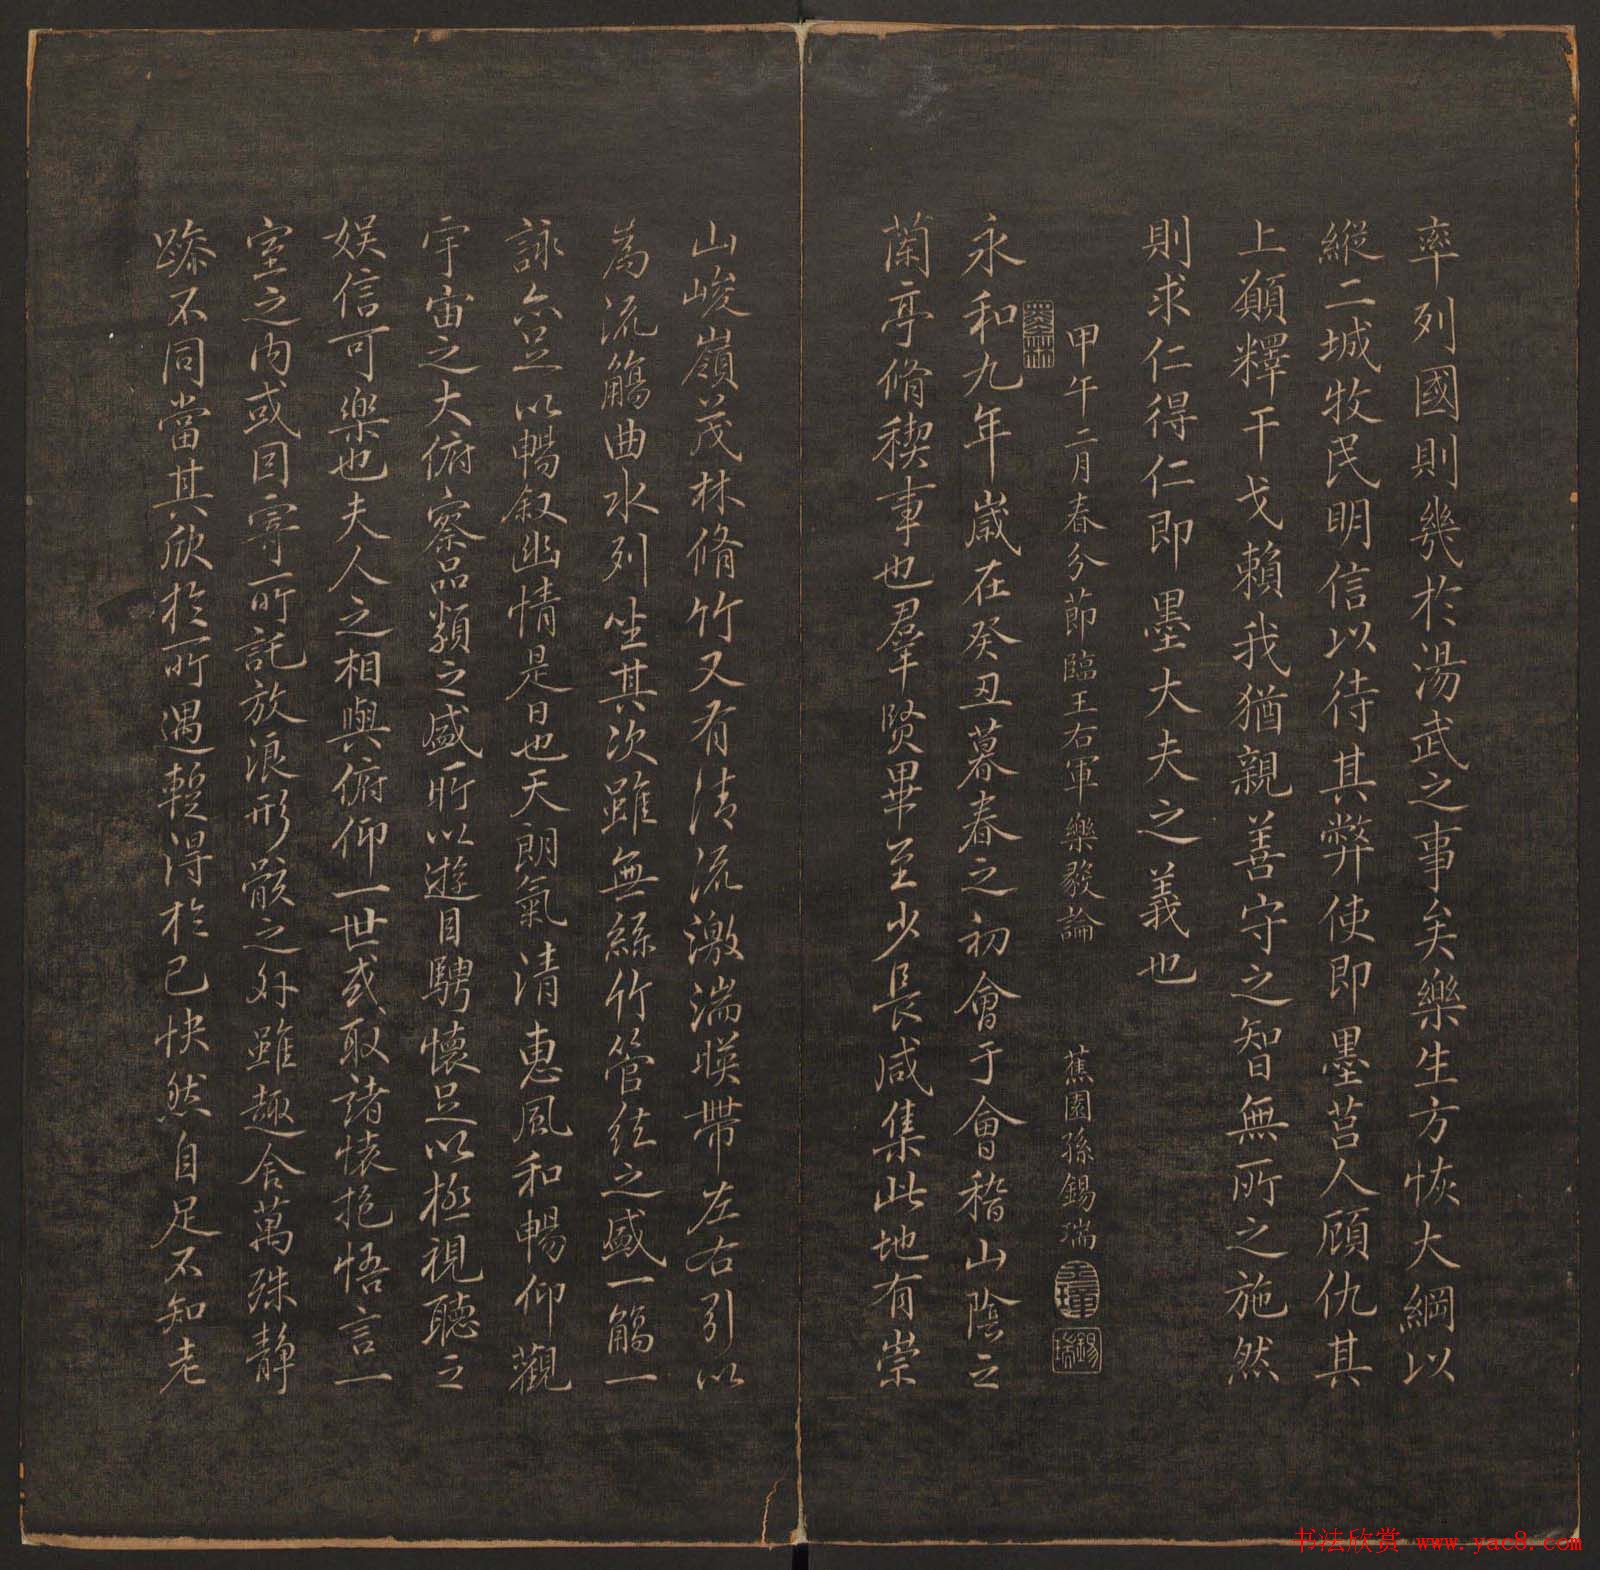 率列國則幾於湯武之事矣樂生方恢大綱以
縱二城牧民明信以待其弊使即墨莒人顧仇其
上願釋干戈賴我猶親善守之智無所之施然
則求仁得仁即墨大夫之義也
甲午二月春分節臨王右軍樂毅論 蕉園孫錫瑞
錫瑞
永和九年歲在癸丑暮春之初會于會稽山陰之
蘭亭脩稧事也羣賢畢至少長咸集此地有崇
山峻嶺茂林脩竹又有清流激湍暎帶左右引以
為流觴曲水列坐其次雖無絲竹管弦之盛一觴一
詠亦足以暢叙幽情是日也天朗氣清惠風和暢仰觀
宇宙之大俯察品類之盛所以遊目騁懷足以極視聽之
娛信可樂也夫人之相與俯仰一世或取諸懷抱悟言一
室之內或因寄所託放浪形骸之外雖趣舍萬殊靜
躁不同當其欣於所遇暫得於己快然自足不知老
书法欣赏 www.yac8.com